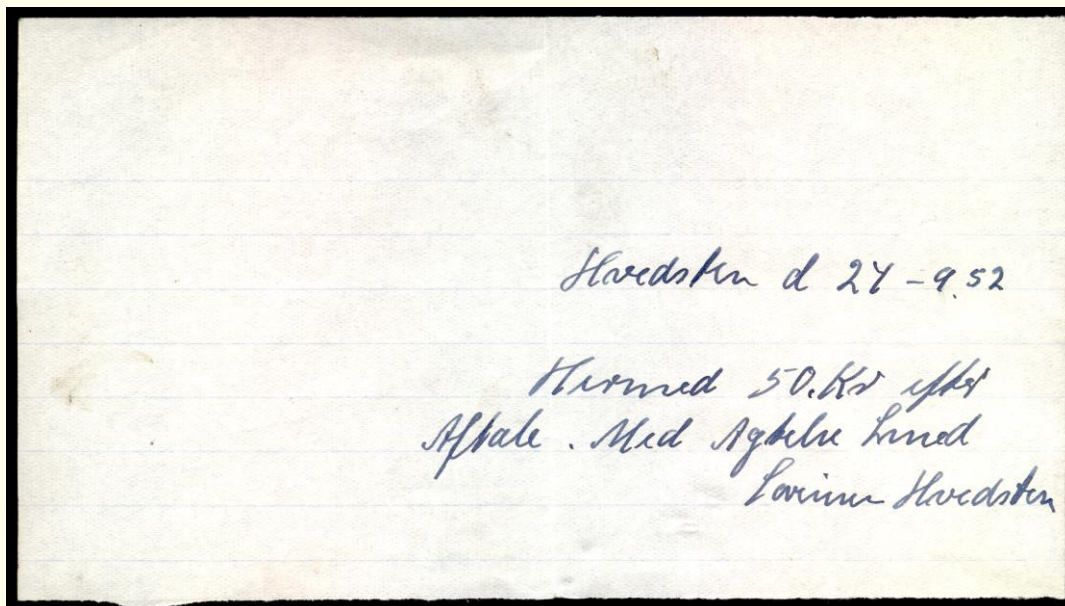 Hvedsten d 24 - 9. 52
Hermed 50. Kr efter
Aftale. Med Agtelse
Hvedsten